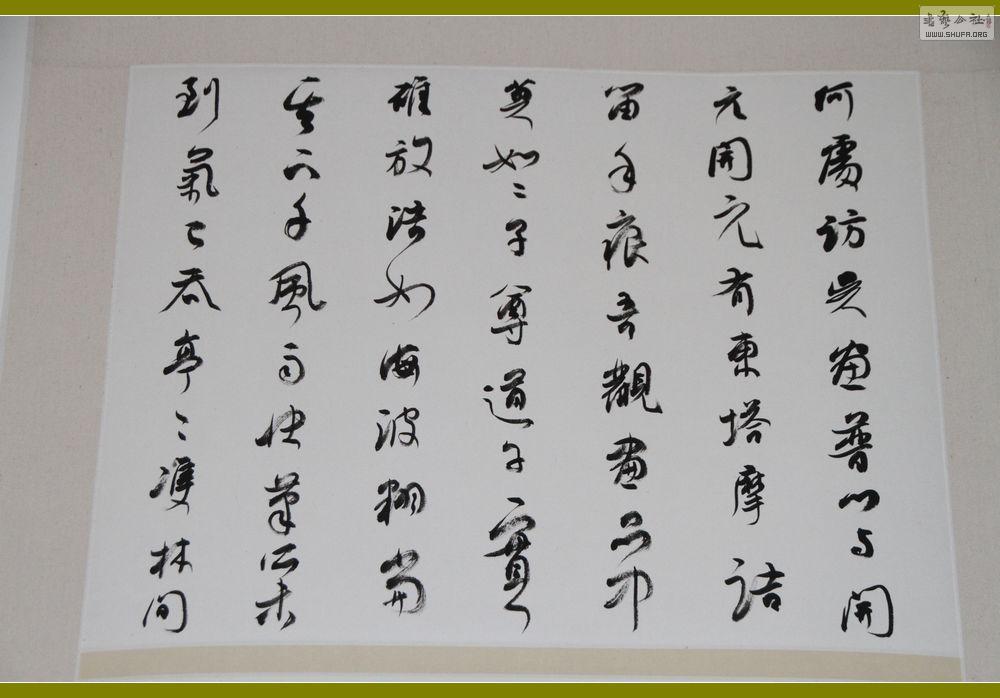 何處訪吳畫普門与開
元開元有東塔摩詰
留手痕吾觀畫品中
莫如二子尊道子實
雄放浩如海波翻當
其下手風雨快筆所未
到氣已吞亭〻雙林間
书艺公社
WWW.SHUFA.ORG